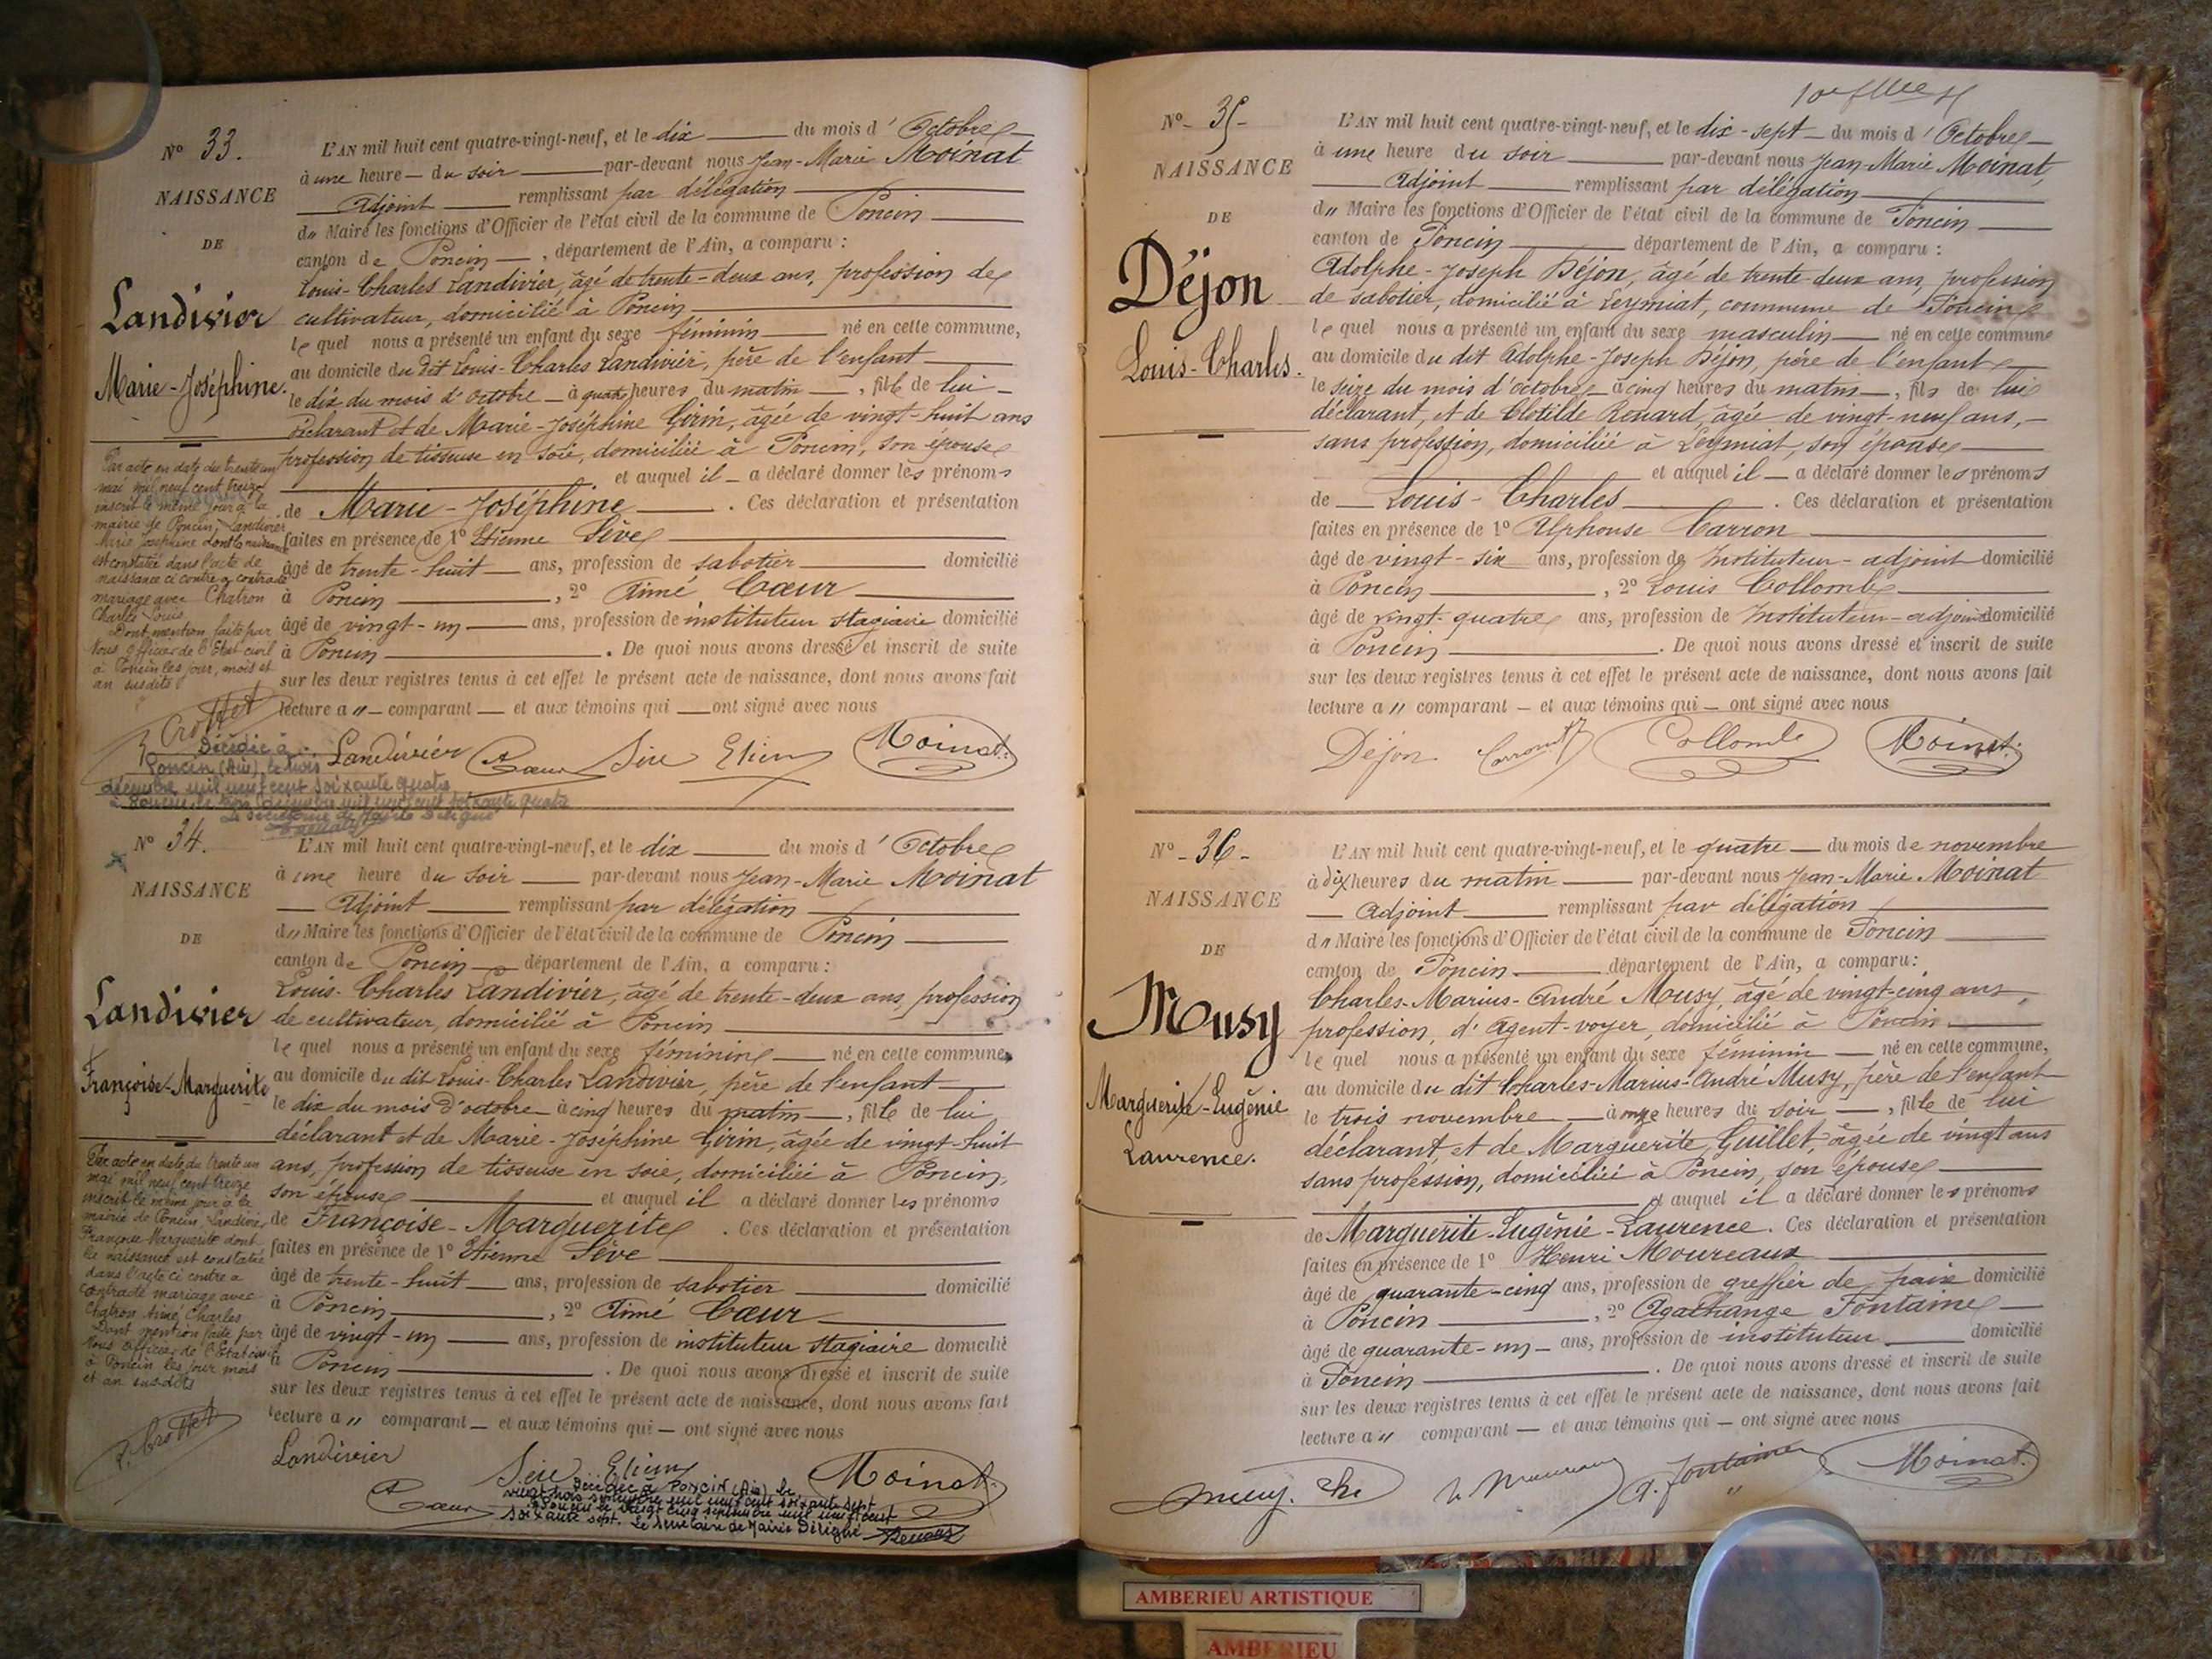 N° 33.
NAISSANCE
DE
Landivier
Marie-Joséphine.
L'AN mil huit cent quatre-vingt-neuf, et le dix du mois d'Octobre
à une heure du soir par-devant nous Jean-Marie Moinat
Adjoint remplissant par délégation
du Maire les fonctions d'Officier de l'état civil de la commune de Poncin
canton de Poncin, département de l'Ain, a comparu :
Louis-Charles Landivier, âgé de trente-deux ans, profession de
cultivateur, domicilié à Poncin
le quel nous a présenté un enfant du sexe féminin né en cette commune,
au domicile du dit Louis-Charles Landivier, père de l'enfant
le dix du mois d'octobre à quatre heures du matin, fille de lui
déclarant et de Marie-Joséphine Girin, âgée de vingt-huit ans
profession de tisseuse en soie, domiciliée à Poncin, son épouse
et auquel il a déclaré donner les prénoms
de Marie-Joséphine. Ces déclaration et présentation
faites en présence de 1° Etienne Sève
âgé de trente-huit ans, profession de sabotier domicilié
à Poncin, 2° Aimé Cœur
âgé de vingt-un ans, profession de instituteur stagiaire domicilié
à Poncin. De quoi nous avons dressé et inscrit de suite
sur les deux registres tenus à cet effet le présent acte de naissance, dont nous avons fait
lecture au comparant et aux témoins qui ont signé avec nous
Landivier Cœur Sève Etienne Moinat
Par acte en date du trente un
mai mil neuf cent treize
inscrit le même jour à la
mairie de Poncin, Landivier
Marie Joséphine dont la naissance
est constatée dans l'acte de
naissance ci contre a contracté
mariage avec Chatron
Charles Louis
Dont mention faite par
Nous Officier de l'Etat civil
à Poncin les jour, mois et
an susdits
Crottet
Décédée à
Poncin (Ain), le trois
décembre mil neuf cent soixante quatre
à Poncin, le trois décembre mil neuf cent soixante quatre
Le Secrétaire de Mairie Délégué
N° 34.
NAISSANCE
DE
Landivier
Françoise-Marguerite
L'AN mil huit cent quatre-vingt-neuf, et le dix du mois d'Octobre
à une heure du soir par-devant nous Jean-Marie Moinat
Adjoint remplissant par délégation
du Maire les fonctions d'Officier de l'état civil de la commune de Poncin
canton de Poncin département de l'Ain, a comparu :
Louis-Charles Landivier, âgé de trente-deux ans, profession
de cultivateur, domicilié à Poncin
le quel nous a présenté un enfant du sexe féminin né en cette commune,
au domicile du dit Louis-Charles Landivier, père de l'enfant
le dix du mois d'octobre à cinq heures du matin, fille de lui
déclarant et de Marie-Joséphine Girin, âgée de vingt-huit
ans, profession de tisseuse en soie, domiciliée à Poncin,
son épouse et auquel il a déclaré donner les prénoms
de Françoise-Marguerite. Ces déclaration et présentation
faites en présence de 1° Etienne Sève
âgé de trente-huit ans, profession de sabotier domicilié
à Poncin, 2° Aimé Cœur
âgé de vingt-un ans, profession de instituteur stagiaire domicilié
à Poncin. De quoi nous avons dressé et inscrit de suite
sur les deux registres tenus à cet effet le présent acte de naissance, dont nous avons fait
lecture au comparant et aux témoins qui ont signé avec nous
Landivier Cœur Sève Etienne Moinat
Par acte en date du trente un
mai mil neuf cent treize
inscrit le même jour à la
mairie de Poncin, Landivier
Françoise Marguerite dont
la naissance est constatée
dans l'acte ci contre a
contracté mariage avec
Chatron Aimé Charles
Dont mention faite par
Nous Officier de l'Etat civil
à Poncin les jour mois
et an susdits
Crottet
Décédée à PONCIN (Ain) le
vingt trois septembre mil neuf cent soixante sept
à Poncin le vingt cinq septembre mil neuf cent
soixante sept. Le Secrétaire de Mairie Délégué
N° 35
NAISSANCE
DE
Déjon
Louis-Charles.
L'AN mil huit cent quatre-vingt-neuf, et le dix-sept du mois d'Octobre
à une heure du soir par-devant nous Jean-Marie Moinat,
Adjoint remplissant par délégation
du Maire les fonctions d'Officier de l'état civil de la commune de Poncin
canton de Poncin département de l'Ain, a comparu :
Adolphe-Joseph Déjon, âgé de trente-deux ans, profession
de sabotier, domicilié à Leymiat, commune de Poncin
le quel nous a présenté un enfant du sexe masculin né en cette commune
au domicile du dit Adolphe-Joseph Déjon, père de l'enfant
le seize du mois d'octobre à cinq heures du matin, fils de lui
déclarant, et de Clotilde Renard âgée de vingt-neuf ans,
sans profession, domiciliée à Leymiat, son épouse
et auquel il a déclaré donner les prénoms
de Louis-Charles. Ces déclaration et présentation
faites en présence de 1° Alphonse Carron
âgé de vingt-six ans, profession de Instituteur-adjoint domicilié
à Poncin, 2° Louis Collomb
âgé de vingt-quatre ans, profession de Instituteur-adjoint domicilié
à Poncin. De quoi nous avons dressé et inscrit de suite
sur les deux registres tenus à cet effet le présent acte de naissance, dont nous avons fait
lecture au comparant et aux témoins qui ont signé avec nous
Déjon Collomb Moinat
N° 36
NAISSANCE
DE
Musy
Marguerite-Eugénie
Laurence.
L'AN mil huit cent quatre-vingt-neuf, et le quatre du mois de novembre
à dix heures du matin par-devant nous Jean-Marie Moinat
Adjoint remplissant par délégation
du Maire les fonctions d'Officier de l'état civil de la commune de Poncin
canton de Poncin département de l'Ain, a comparu :
Charles-Marius-André Musy, âgé de vingt-cinq ans,
profession d'Agent-voyer, domicilié à Poncin
le quel nous a présenté un enfant du sexe féminin né en cette commune,
au domicile du dit Charles-Marius-André Musy, père de l'enfant
le trois novembre à onze heures du soir, fille de lui
déclarant, et de Marguerite Guillet, âgée de vingt ans
sans profession, domiciliée à Poncin, son épouse
et auquel il a déclaré donner les prénoms
de Marguerite-Eugénie-Laurence. Ces déclaration et présentation
faites en présence de 1° Henri Moureaux
âgé de quarante-cinq ans, profession de greffier de paix domicilié
à Poncin, 2° Agathange Fontaine
âgé de quarante-un ans, profession de instituteur domicilié
à Poncin. De quoi nous avons dressé et inscrit de suite
sur les deux registres tenus à cet effet le présent acte de naissance, dont nous avons fait
lecture au comparant et aux témoins qui ont signé avec nous
Musy. Ch A. Fontaine Moinat
AMBERIEU ARTISTIQUE
AMBERIEU